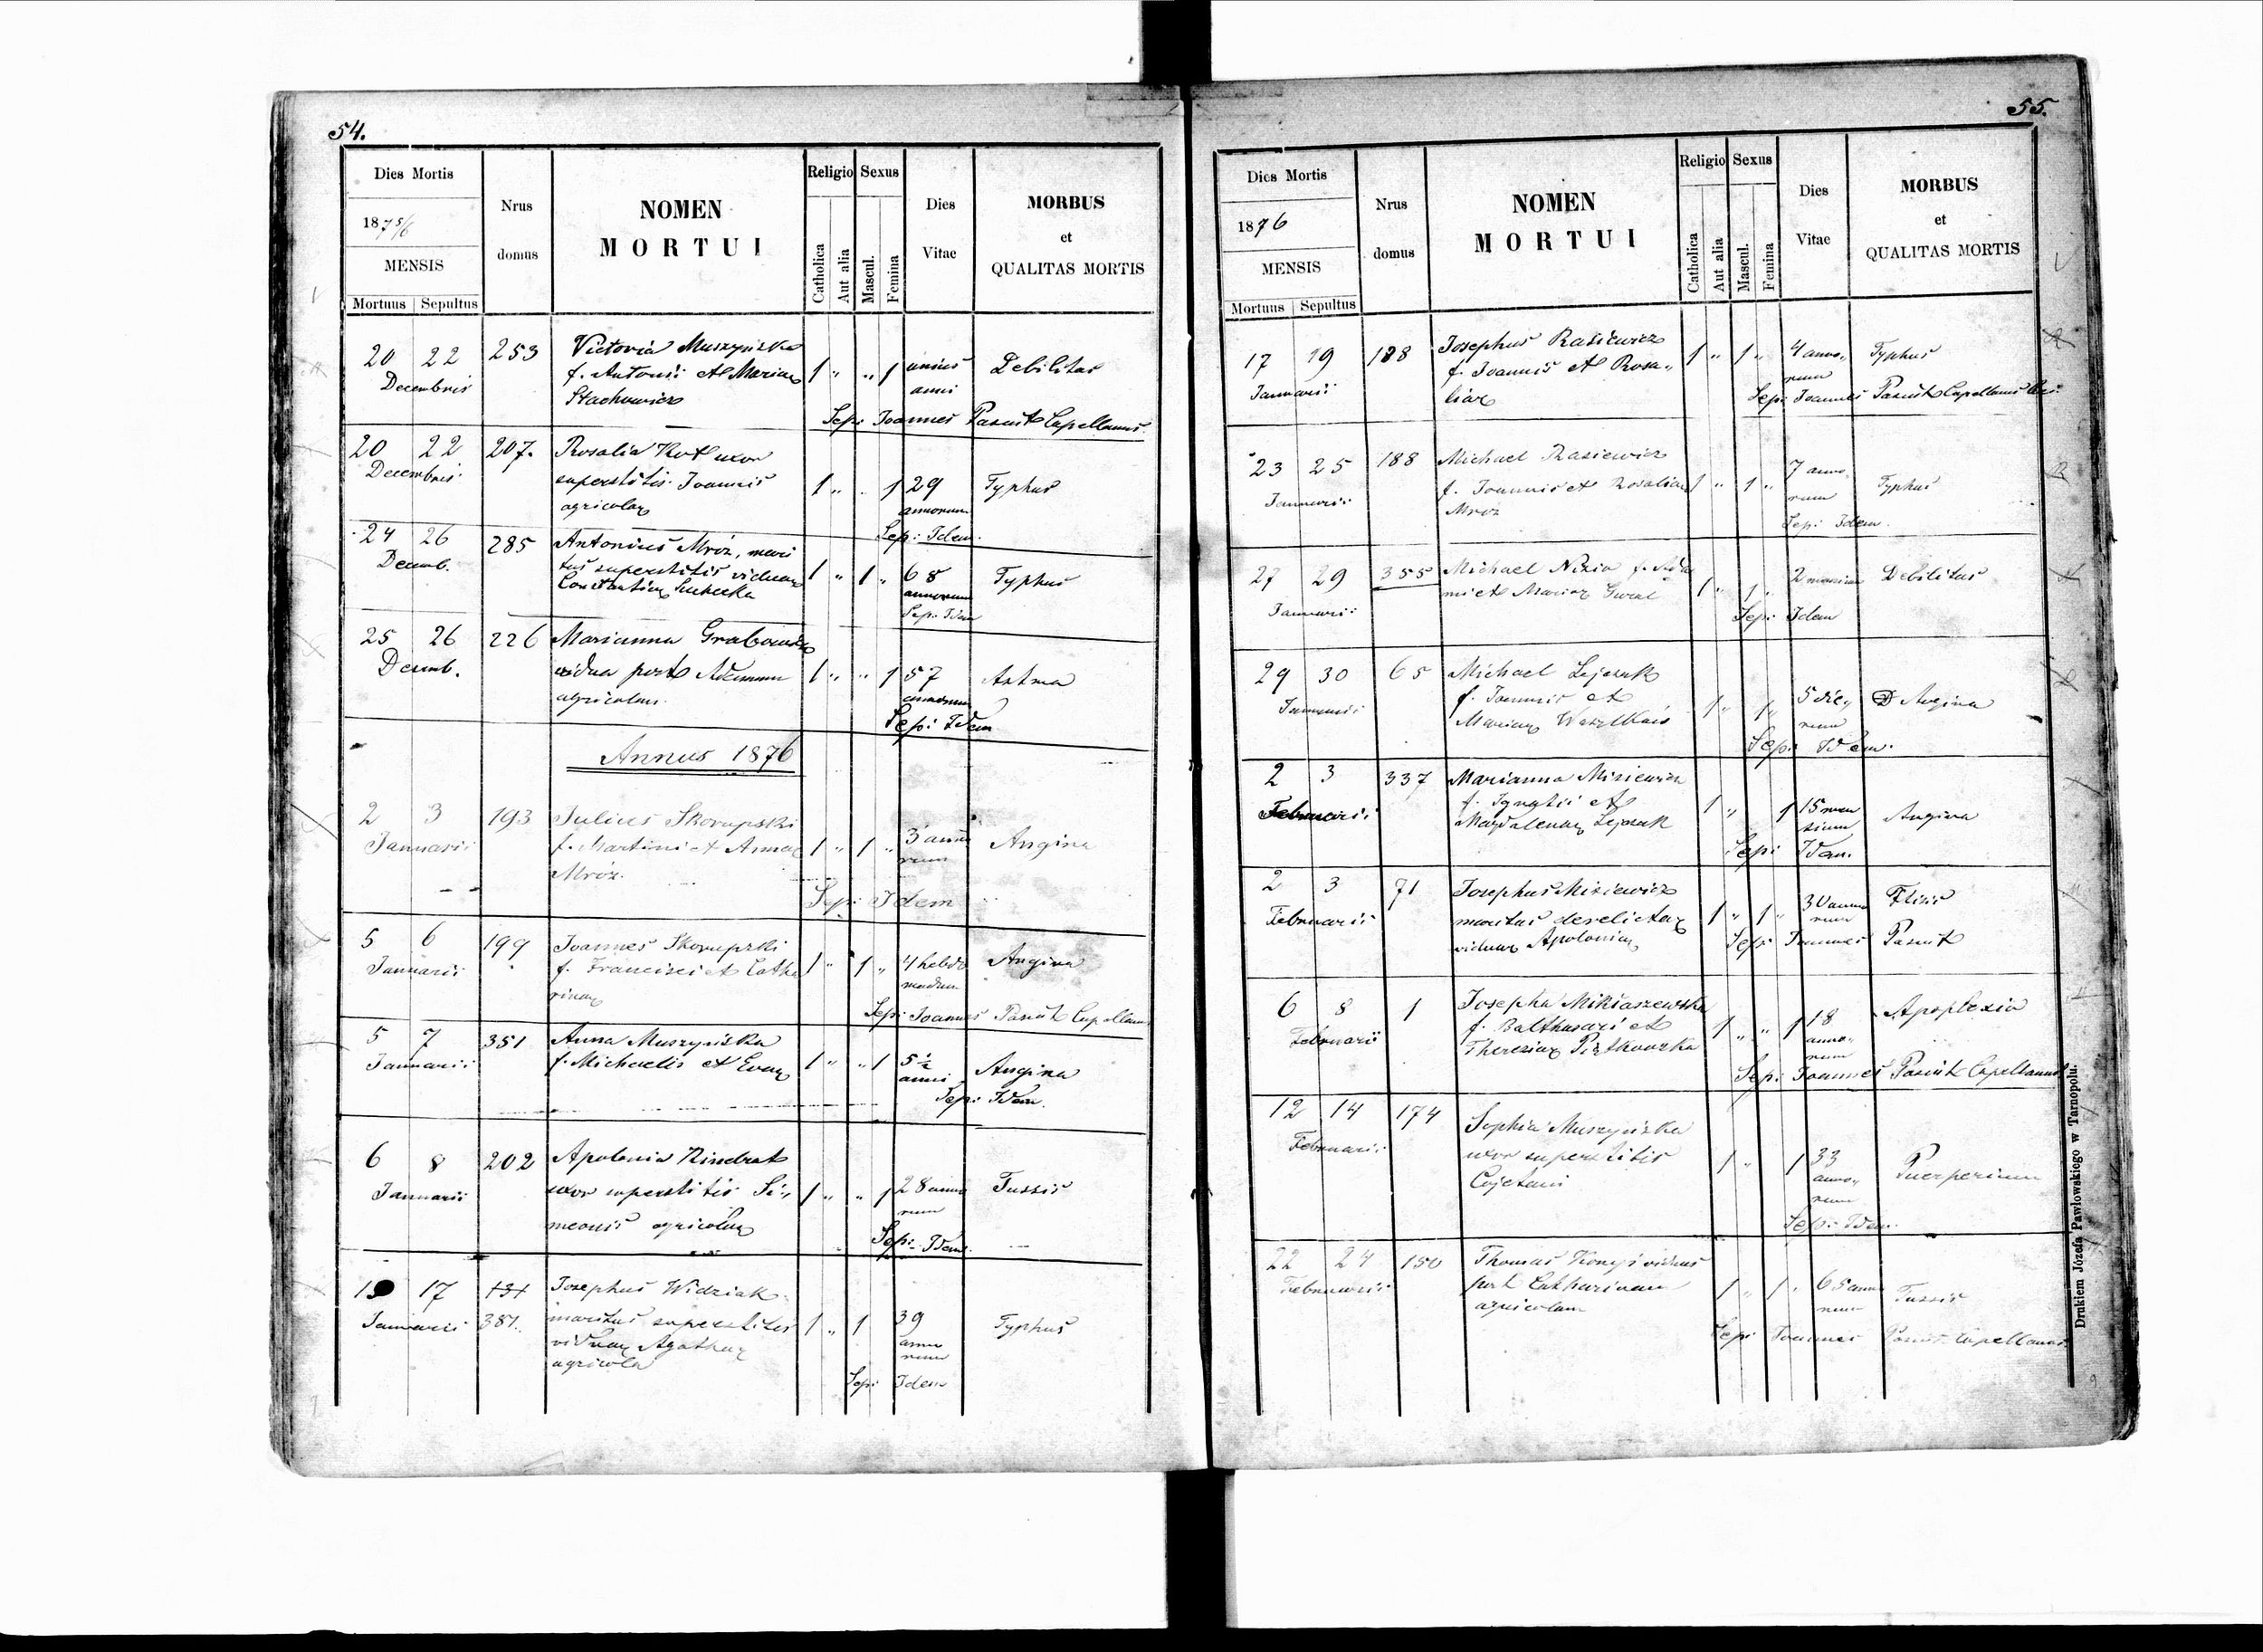 54.
Dies Mortis
1875/6
MENSIS
Mortuus Sepultus
Nrus domus
NOMEN
MORTUI
Religio
Catholica
Aut alia
Sexus
Mascul.
Femina
Dies
Vitae
MORBUS
et
QUALITAS MORTIS
20 22 253 Victoria Muszyńska 1 " " 1 unius Debilitas
Decembris f. Antonii et Mariae anni
Stachowicz
Sep: Joannes Pasiut Capellanus
20 22 207. Rosalia Kot uxor
Decembris superstitis Joannis 1 " . 1 29 Typhus
agricolae annorum
Sep: Idem.
24 26 285 Antonius Mróz, mari
Decemb. tus superstitis viduae 1 " 1 " 68 Typhus
Constantiae annorum
Sep: Idem
25 26 226 Marianna Grabowska
Decemb. vidua post Adamum 1 " " 1 57 Astma
agricolam. annorum
Sep: Idem
Annus 1876
2 3 193 Julius Skorupski
Januarii f. Martini et Annae 1 " 1 " 3 anno Angina
Mróz. rum
Sep: Idem
5 6 199 Joannes Skorupski
Januarii f. Francisci et Catha 1 " 1 " 4 hebdo Angina
rinae madum
Sep: Joannes Pasiut Capellanus
5 7 351 Anna Muszyńska
Januarii f. Michaelis et Evae 1 " " 1 5 1/2 Angina
anni
Sep: Idem.
6 8 202 Apolonia
Januarii uxor superstitis Si: 1 " " 1 28 anno Tussis
meonis agricolae rum
Sep: Idem.
17 131 Josephus Widziak
Januarii 381. maritus superstitis 1 " 1 39 Typhus
viduae Agathae anno
agricola rum
Sep: Idem
55.
Dies Mortis
1876
MENSIS
Mortuus Sepultus
Nrus
domus
NOMEN
MORTUI
Religio
Catholica
Aut alia
Sexus
Mascul.
Femina
Dies
Vitae
MORBUS
et
QUALITAS MORTIS
17 19 188 Josephus Rasiewicz
Januarii f. Joannis et Rosa„ 1 " 1 " 4 anno„ Typhus
liae rum
Sep: Joannes Pasiut Capellanus
23 25 188 Michael Rasiewicz
Januarii f. Joannis et Rosaliae 1 " 1 " 7 anno„ Typhus
Mroz rum
Sep: Idem.
27 29 355 Michael Nizio f. Ada
Januarii mi et Mariae Gural 1 " 1 " 2 mensium Debilitas
Sep: Idem
29 30 65 Michael Lejczak
Januarii f. Joannis et 1 " 1 " 5 die„ Angina
Mariae rum
Sep: Idem.
2 3 337 Marianna Misiewicz
Februarii f. Ignatii et 1 " 1 15 men Angina
Magdalenae Lejczak sium
Sep: Idem.
2 3 71 Josephus Misiewicz
Februarii maritus derelictae 1 " 1 " 30 anno Ftisis
viduae Apoloniae rum
Sep: Joannes Pasiut
6 8 1 Josepha Mikiaszewska
Februarii f. Balthasari et 1 " " 1 18 Apoplexia
Theresiae Piątkowska anno„
rum
Sep: Joannes Pasiut Capellanus
12 14 174 Sophia Muszyńska
Februarii uxor superstitis 1 " 1 33 Puerperium
Cajetani anno„
rum
Sep: Idem.
22 24 150 Thomas viduus
Februarii post Catharinam 1 " 1 " 65 anno Tussis
agricolam rum
Sep: Joannes Pasiut Capellanus
Drukiem Józefa Pawłowskiego w Tarnopolu.